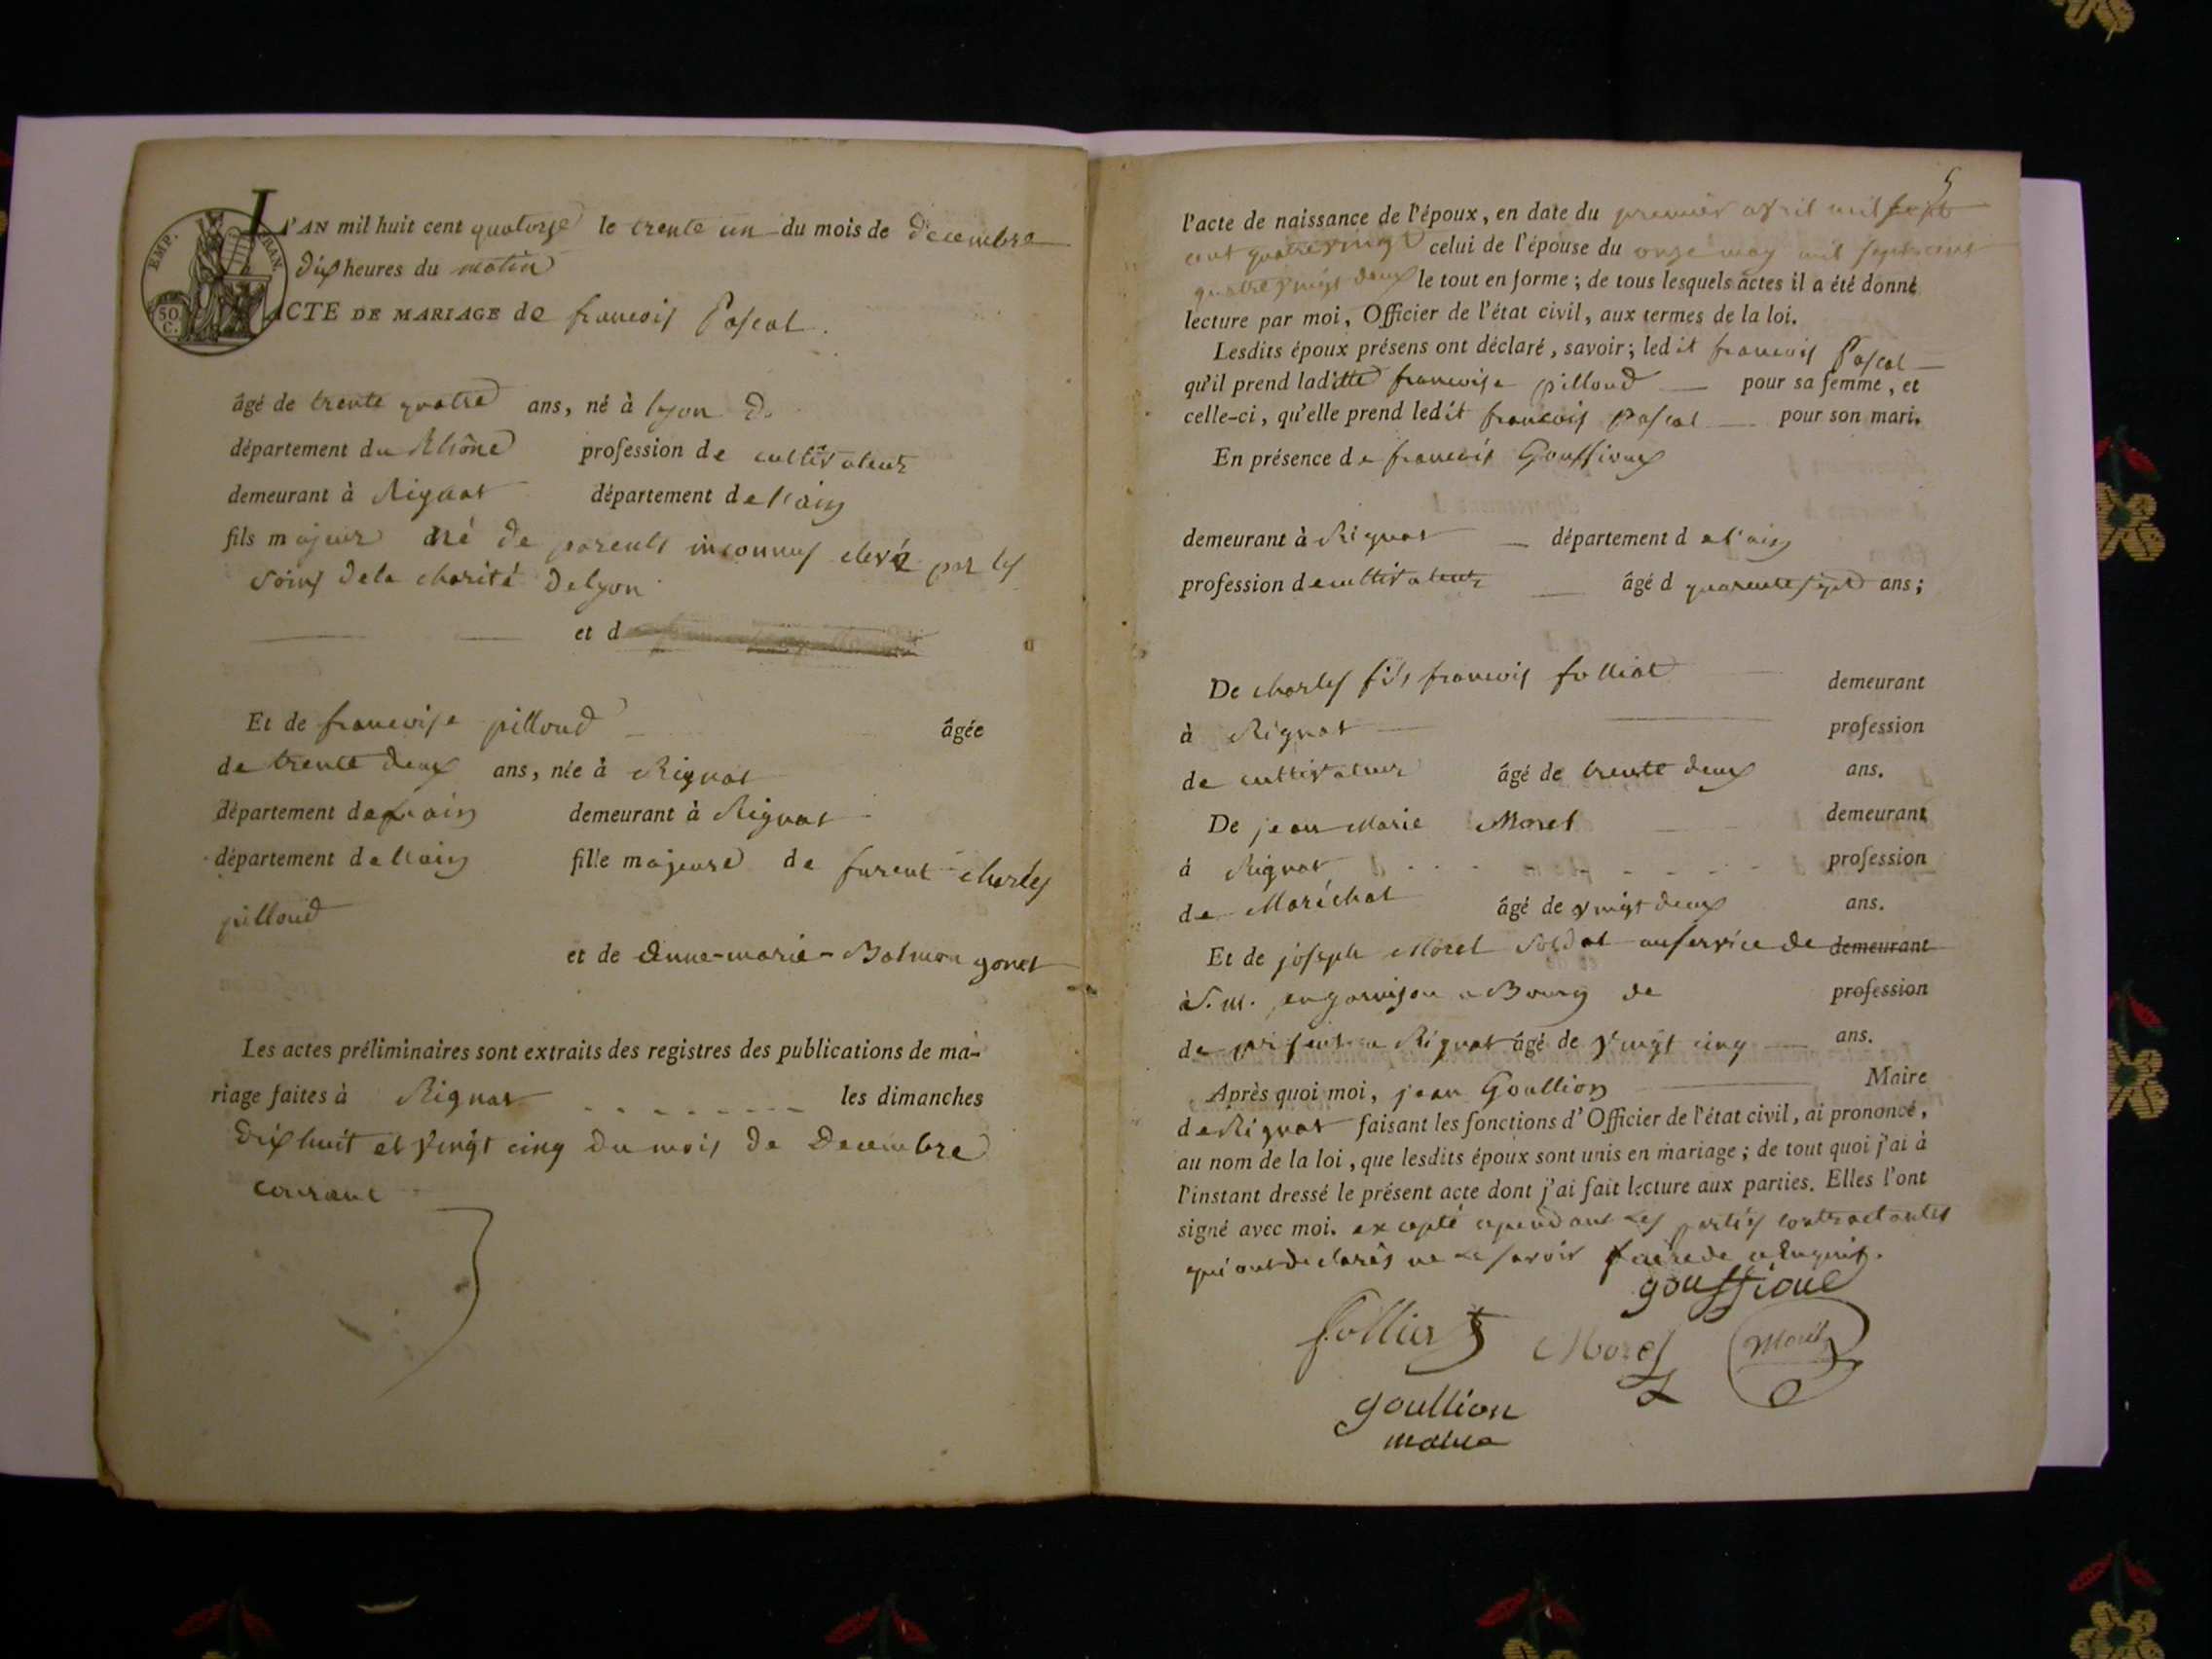 EMP. FRAN.
50 C.
L'AN mil huit cent quatorze le trente un du mois de decembre
dix heures du matin
ACTE DE MARIAGE de francois Pascal.
âgé de trente quatre ans, né à lyon d.
département du Rhône profession de cultivateur
demeurant à Rignat département de l'ain
fils majeur né de parents inconnus elevé par les
soins dela charité de lyon
et d
Et de francoise pilloud âgée
de trente deux ans, née à Rignat
département de l'ain demeurant à Rignat
département de l'ain fille majeure de furent charles
pilloud
et de anne-marie-Balmon gonet
Les actes préliminaires sont extraits des registres des publications de ma-
riage faites à Rignat les dimanches
dix huit et vingt cinq du mois de Decembre
courant
5
l'acte de naissance de l'époux, en date du premier avril mil sept
cent quatrevingt celui de l'épouse du onze may mil sept cent
quatrevingt deux le tout en forme ; de tous lesquels actes il a été donné
lecture par moi, Officier de l'état civil, aux termes de la loi.
Lesdits époux présens ont déclaré, savoir ; ledit francois Pascal
qu'il prend laditte francoise pilloud pour sa femme, et
celle-ci, qu'elle prend ledit francois Pascal pour son mari.
En présence de francois Gouffioux
demeurant à Rignat département de l'ain
profession de cultivateur âgé d quarente sept ans ;
De charles fils francois folliat demeurant
à Rignat profession
de cultivateur âgé de trente deux ans.
De jean marie Morel demeurant
à Rignat profession
de Maréchal âgé de vingt deux ans.
Et de joseph Morel Soldat au service de demeurant
à S. M. en garnison a Bourg de profession
de present a Rignat âgé de vingt cinq ans.
Après quoi moi, jean Goullion Maire
de Rignat faisant les fonctions d'Officier de l'état civil, ai prononcé,
au nom de la loi, que lesdits époux sont unis en mariage ; de tout quoi j'ai à
l'instant dressé le présent acte dont j'ai fait lecture aux parties. Elles l'ont
signé avec moi. excepté cependant les parties contractantes
qui ont declarés ne le savoir faire de ce Enquis.
gouffioue
folliat Morel Morel
goullion
maire